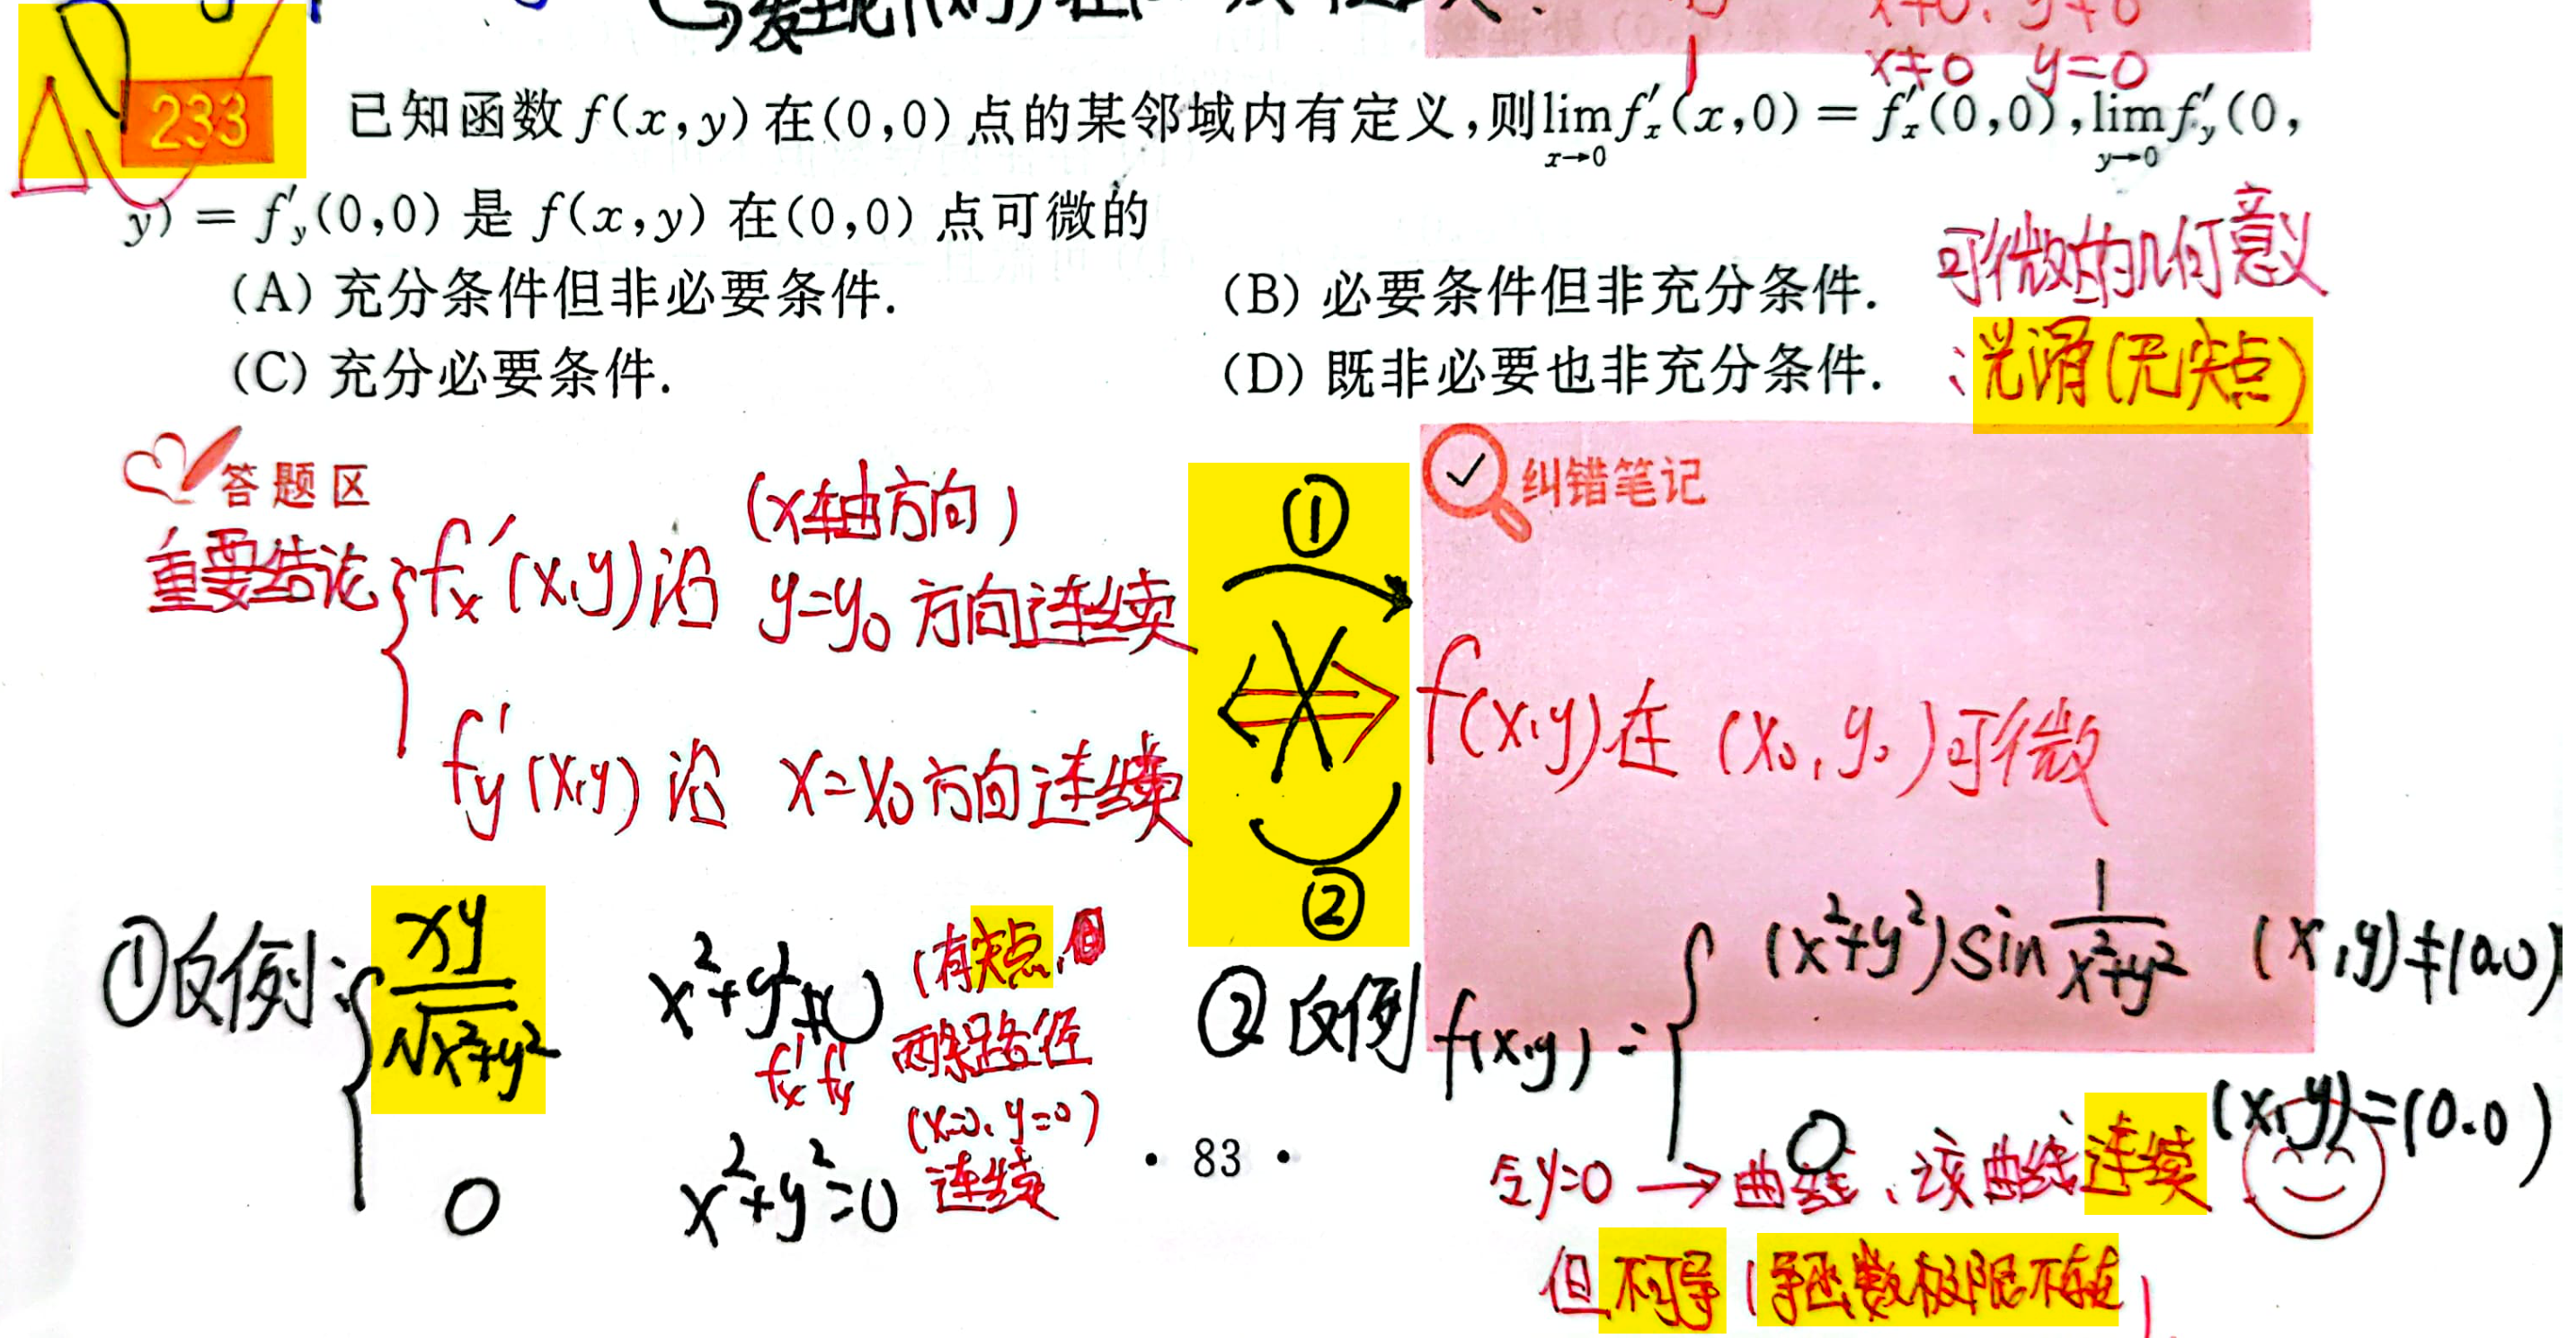 x≠0 y=0
233 已知函数 f(x,y) 在(0,0) 点的某邻域内有定义,则lim_{x→0} f′_x(x,0) = f′_x(0,0), lim_{y→0} f′_y(0,
y) = f′_y(0,0) 是 f(x,y) 在(0,0) 点可微的
(A) 充分条件但非必要条件. (B) 必要条件但非充分条件.
(C) 充分必要条件. (D) 既非必要也非充分条件.
可微的几何意义
:光滑(无尖点)
答题区
纠错笔记
重要结论
(x轴方向)
f′x(x,y)沿 y=y0 方向连续
f′y(x,y)沿 x=x0 方向连续
①
②
f(x,y)在 (x0,y0)可微
①反例: xy/√x²+y² x²+y²≠0
0 x²+y²=0
(有尖点,但
f′x f′y 两条路径
(x=0、y=0)
连续
②反例 f(x,y) = (x²+y²)sin 1/x²+y² (x,y)≠(0.0)
0 (x,y)=(0.0)
· 83 ·
令y=0 → 曲线、该曲线连续
但不可导(导函数极限不存在)